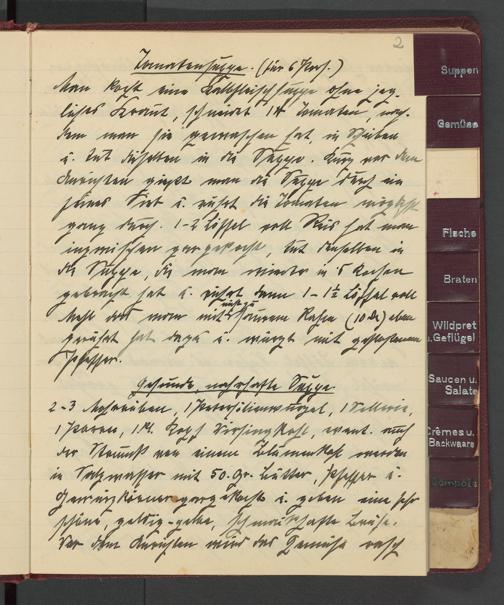 2
Tomatensuppe. (für 6 Pers.)
Man kocht eine Kalbfleischsuppe ohne jeg-
liches Kraut, schneidet 14 Tomaten, nach-
dem man sie gewaschen hat, in Scheiben
u. tut dieselben in die Suppe. Kurz vor dem
Anrichten gießt man die Suppe durch ein
feines Sieb u. rührt die Tomaten möglichst
ganz durch. 1-2 Löffel voll Reis hat man
inzwischen gargekocht tut denselben in
die Suppe, die man wieder in's Kochen
gebracht hat u. rührt dann 1 - 1½ Löffel voll
Mehl das man mit saurem Rahm eben
gerührt hat dazu u. würzt mit gestoßenem
Pfeffer.
Gesunde, nahrhafte Suppe
2-3 Mohrrüben, 1 Petersilienwurzel, 1 Sellerie,
1 Porree, 1 kl. Kopf Wirsingkohl, event. auch
der Strunk von einem Blumenkohl werden
in Salzwasser mit 50. Gr. Butter, Pfeffer u.
Gewürzkörner gargekocht u. geben eine sehr
schöne, goldig-gelbe, schmackhafte Brühe.
Vor dem Anrichten wird das Gemüse rasch
Suppen
Gemüse
Fische
Braten
Wildpret
u. Geflügel
Saucen u.
Salate
Crèmes u.
Backwaare
Compots